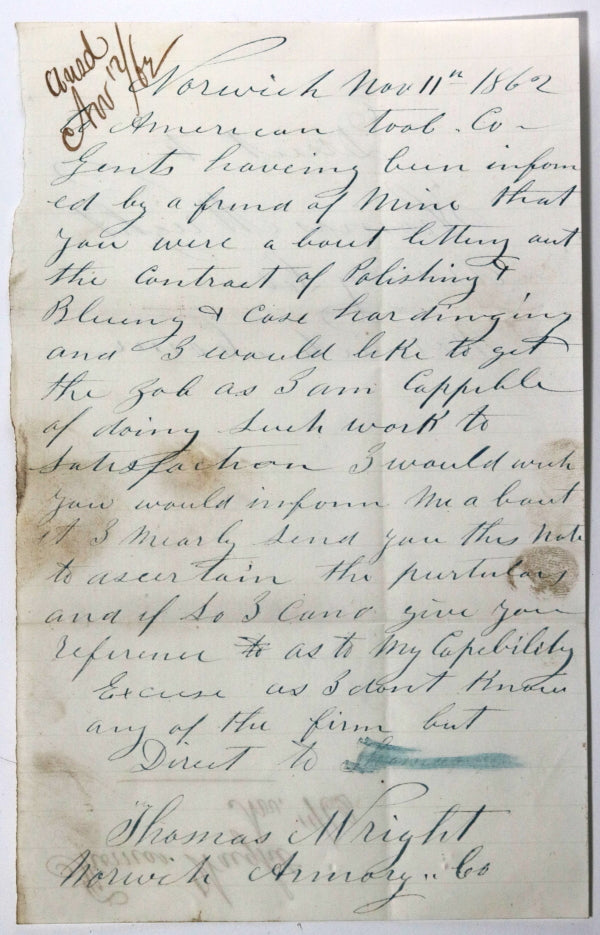 ansd
Nov 12/62
Norwich Nov 11th 1862
To American tool Co
Gents haveing been inform
ed by a frend of Mine that
you were a bout letting out
the Contract of Polishing &
Blueing & Case hardinging
and I would like to get
the Job as I am Cappible
of doing such work to
Satisfaction I would wish
you would inform Me a bout
it I Mearly send you this note
to ascertain the purtulars
and if so I can give you
reference to as to My Capebility
Excuse as I dont Know
any of the firm but
Direct to
Thomas Wright
Norwich Armory Co